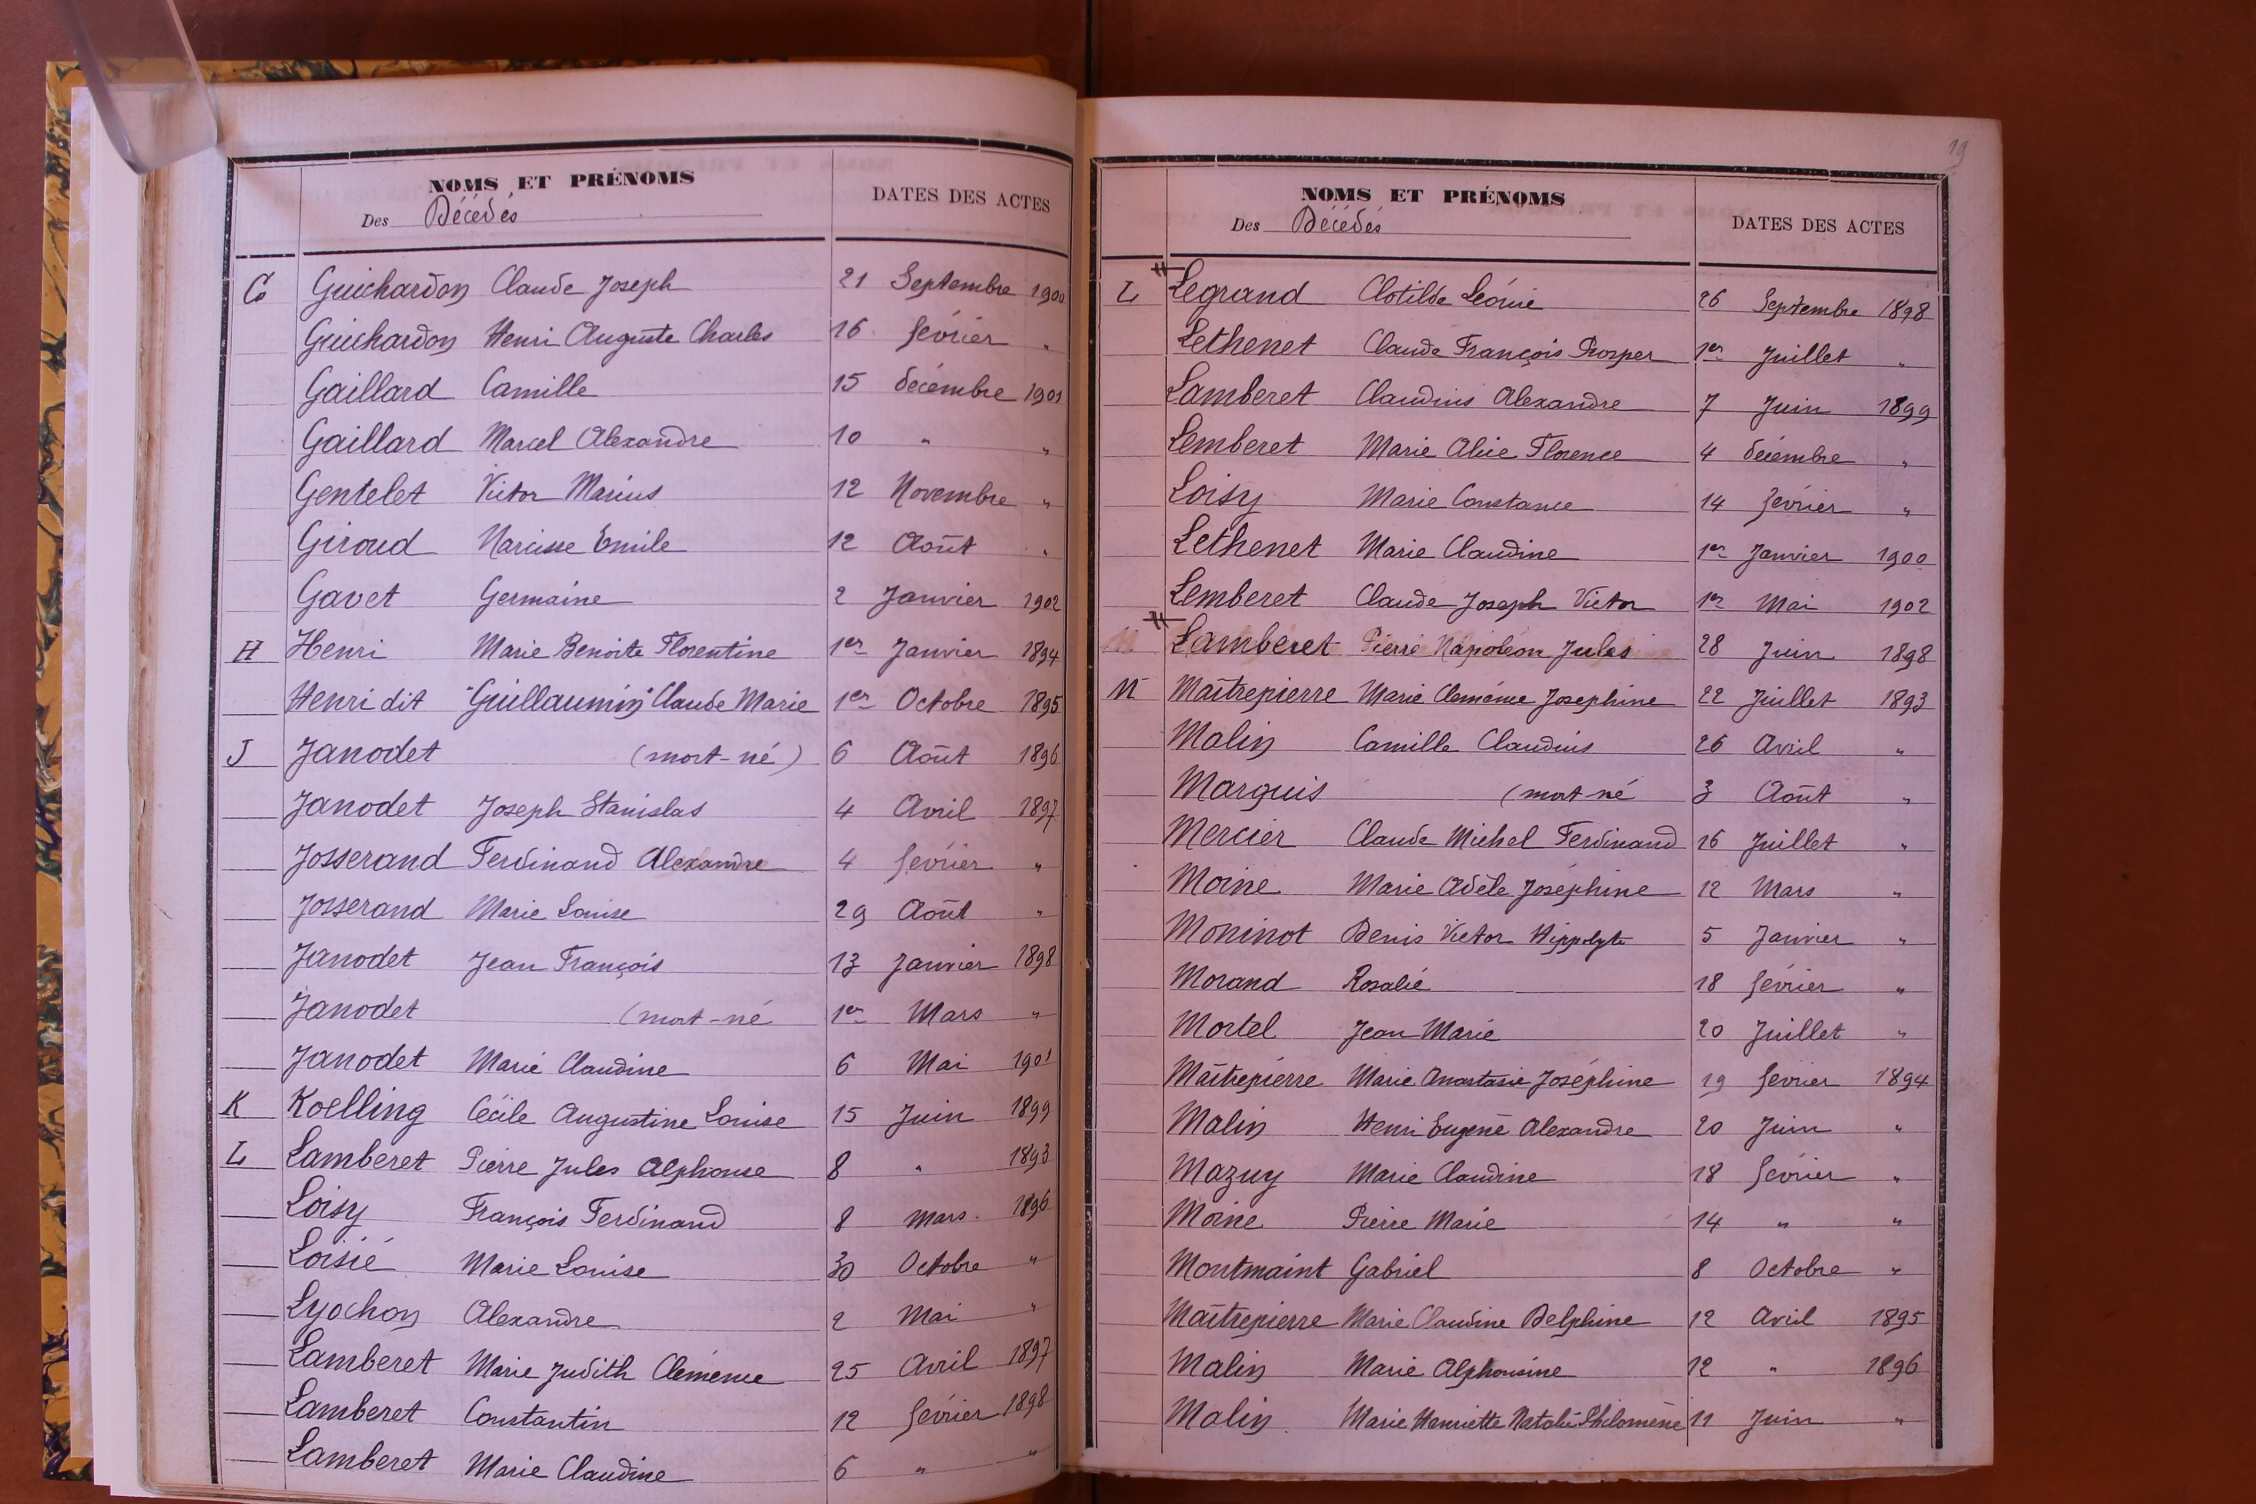 NOMS ET PRÉNOMS
DATES DES ACTES
Des Décédés
G Guichardon Claude Joseph 21 Septembre 1900
Guichardon Henri Auguste Charles 16 février "
Gaillard Camille 15 décembre 1901
Gaillard Marcel Alexandre 10 " "
Gentelet Victor Marius 12 Novembre "
Giroud Narcisse Emile 12 Août "
Gavet Germaine 2 Janvier 1902
H Henri Marie Benoite Florentine 1er Janvier 1894
Henri dit "Guillaumin" Claude Marie 1er Octobre 1895
J Janodet (mort-né) 6 Août 1896
Janodet Joseph Stanislas 4 Avril 1897
Josserand Ferdinand Alexandre 4 février "
Josserand Marie Louise 29 Août "
Janodet Jean François 13 Janvier 1898
Janodet (mort-né 1er Mars "
Janodet Marie Claudine 6 Mai 1901
K Koelling Cécile Augustine Louise 15 Juin 1899
L Lamberet Pierre Jules Alphonse 8 " 1893
Loisy François Ferdinand 8 Mars 1896
Loisié Marie Louise 30 Octobre "
Lyochon Alexandre 2 Mai "
Lamberet Marie Judith Clémence 25 Avril 1897
Lamberet Constantin 12 février 1898
Lamberet Marie Claudine 6 " "
19
NOMS ET PRÉNOMS
DATES DES ACTES
Des Décédés
L Legrand Clotilde Léonie 26 Septembre 1898
Lethenet Claude François Prosper 1er Juillet "
Lamberet Claudius Alexandre 7 Juin 1899
Lemberet Marie Alice Florence 4 décembre "
Loisy Marie Constance 14 février "
Lethenet Marie Claudine 1er Janvier 1900
Lemberet Claude Joseph Victor 1er Mai 1902
Lamberet Pierre Napoléon Jules 28 Juin 1898
M Maîtrepierre Marie Clémence Josephine 22 Juillet 1893
Malin Camille Claudius 26 Avril "
Marquis (mort-né 3 Août "
Mercier Claude Michel Ferdinand 16 Juillet "
Moine Marie Adèle Joséphine 12 Mars "
Moninot Denis Victor Hippolyte 5 Janvier "
Morand Rosalie 18 février "
Mortel Jean Marie 20 Juillet "
Maîtrepierre Marie Anastasie Joséphine 19 février 1894
Malin Henri Eugène Alexandre 20 Juin "
Mazuy Marie Claudine 18 février "
Moine Pierre Marie 14 " "
Montmaint Gabriel 8 Octobre "
Maîtrepierre Marie Claudine Delphine 12 Avril 1895
Malin Marie Alphonsine 12 " 1896
Malin Marie Henriette Natalie Philomène 11 Juin "